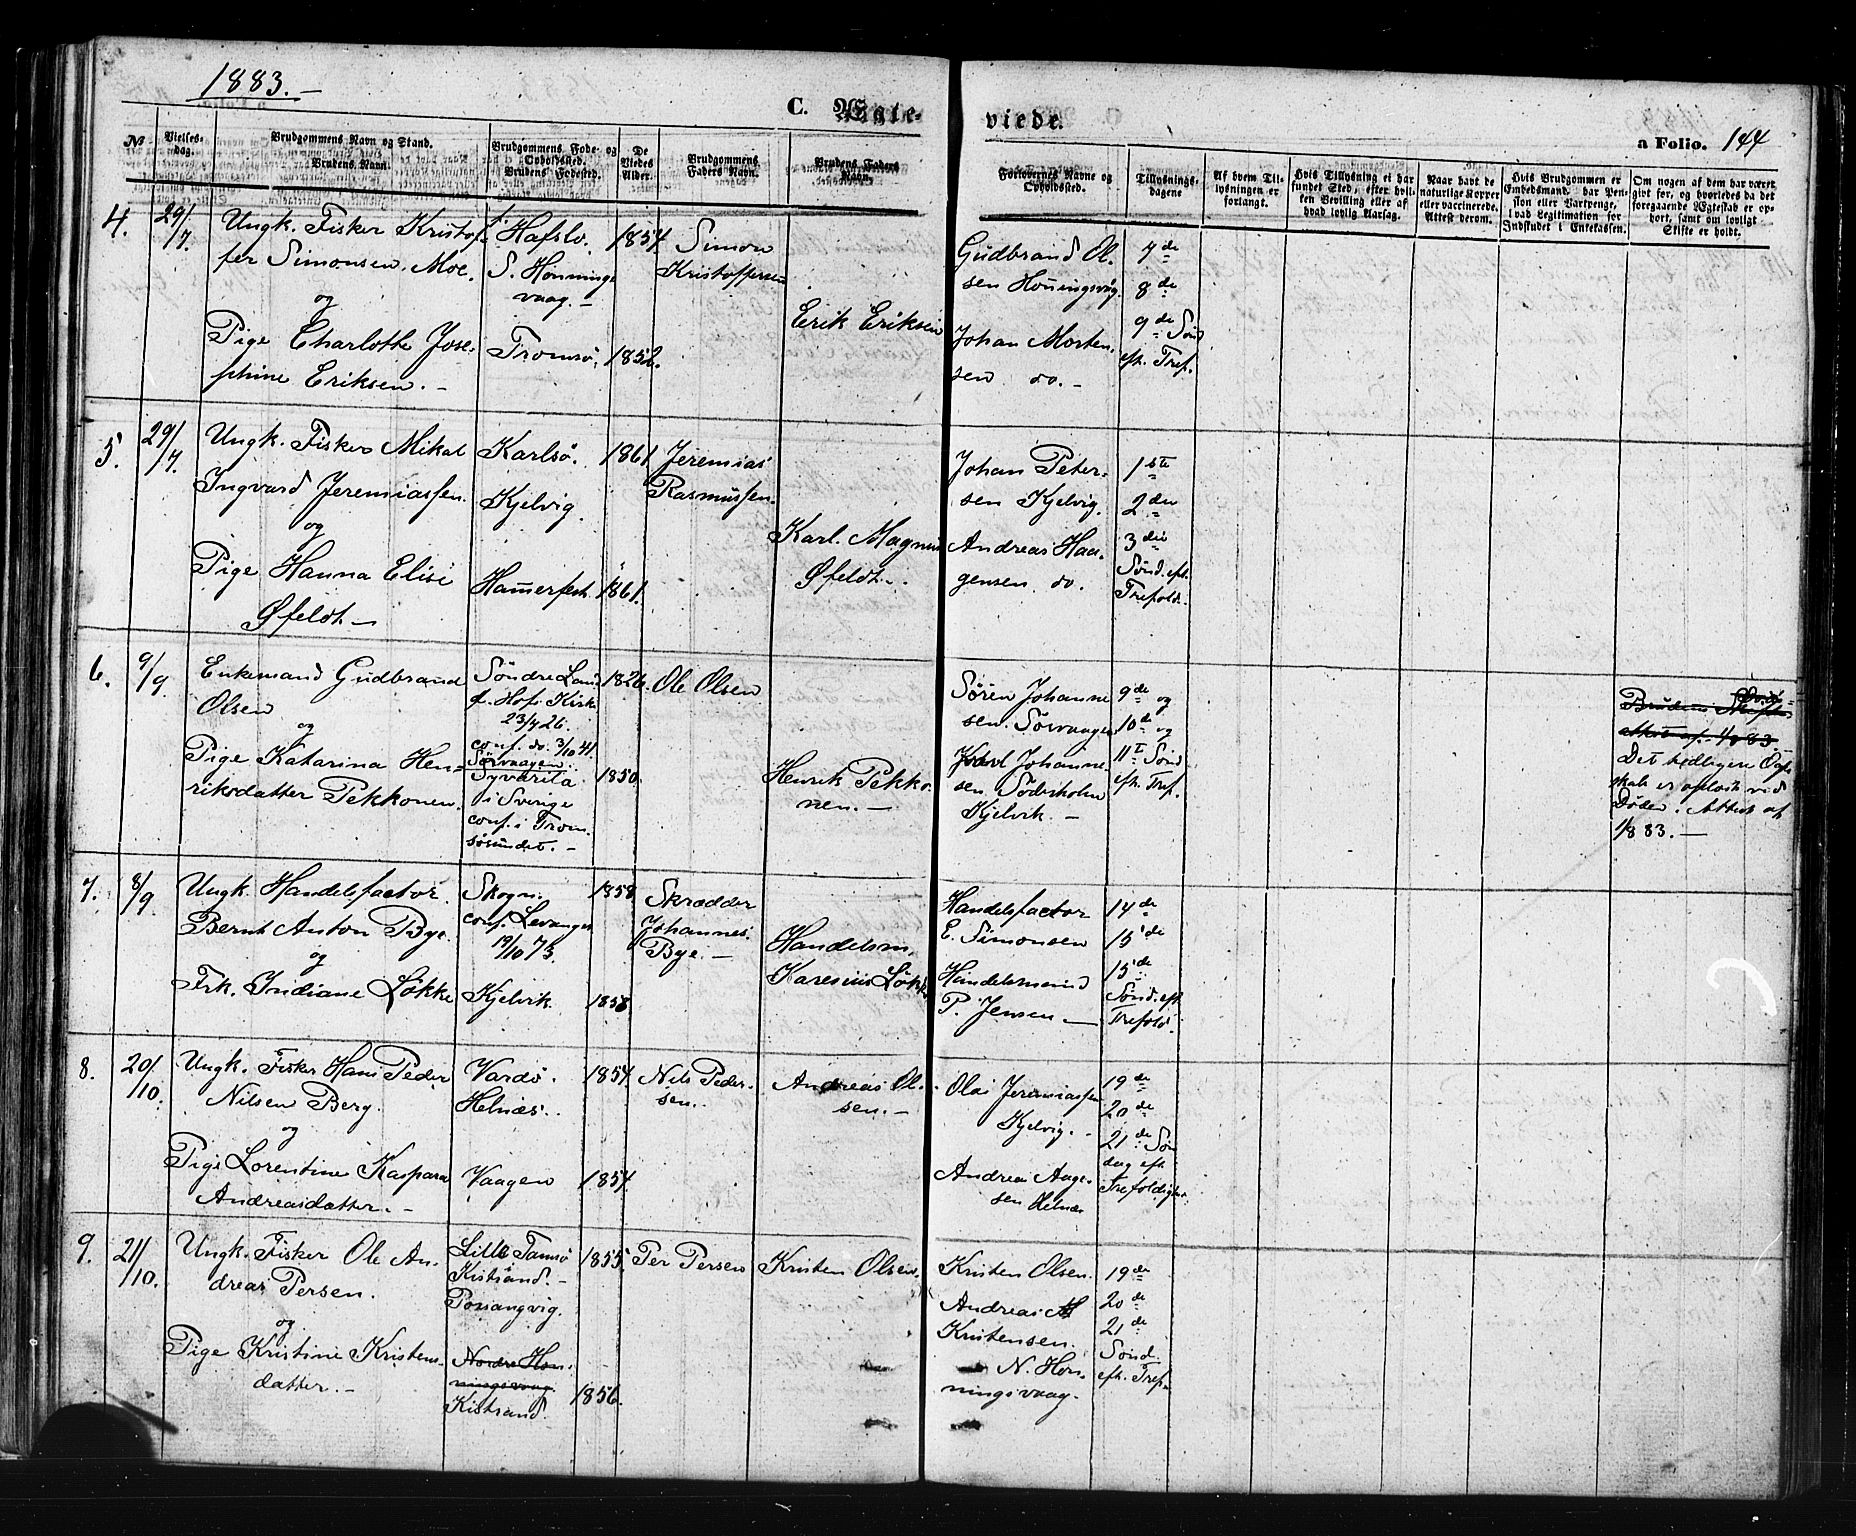 1883. –
C. Ægte-
viede.
a Folio. 144
№
Vielses-
dag.
Brudgommens Navn og Stand.
Brudens Navn.
Brudgommens Føde- og
Opholdssted.
Brudens Fødested.
De
Viedes
Alder.
Brudgommens
Faders Navn.
Brudens Faders
Navn.
Forlovernes Navne og
Opholdssted.
Tillysnings-
dagene
Af hvem Til-
lysningen er
forlangt.
Hvis Tillysning ei har
fundet Sted, efter hvil-
ken Bevilling eller af
hvad lovlig Aarsag.
Naar havt de
naturlige Kopper
eller vaccinerede.
Attest derom.
Hvis Brudgommen er
Embedsmand, har Pen-
sion eller Vartpenge,
i hvad Legitimation for
Indskudet i Enkekassen.
Om nogen af dem har været
gift før, og hvorledes da det
foregaaende Ægteskab er op-
hørt, samt om lovligt
Skifte er holdt.
4.
29/7.
Ungk. Fisker Kristof-
fer Simonsen Moe.
og
Pige Charlotte Jose-
phine Eriksen. –
Hafslo.
S. Honnings-
vaag. –
Tromsø.
1854
1852.
Simon
Kristoffersen
Erik Eriksen
Gudbrand Ol-
sen Honingsvåg.
Johan Morten-
sen do. –
7de
8de
9de Sønd
eft. Tref.
5.
29/7.
Ungk. Fisker Mikal
Ingvard Jeremiassen.
og
Pige Hanna Elise
Øfeldt. –
Karlsø.
Kjelvig.
Hamerfest.
1861.
1861.
Jeremias
Rasmussen.
Karl Magnus
Øfeldt. –
Johan Peter-
sen Kjelvig.
Andreas Haa-
gensen do.
1ste
2den
3die
Sønd. eft.
Trefold.
6.
9/9.
Enkemand Gudbrand
Olsen
og
Pige Katarina Hen-
riksdatter Pekkonen.
Søndre Land
f. Hofs Kirke
23/4 26.
conf. do. 3/10 41.
Sørvaagen.
Syvarita
i Sverige
conf. i Trom-
søsundet. –
1826.
1850.
Ole Olsen
Henrik Pekko-
nen. –
Søren Johanne-
sen. Sørvaagen
Karl Johanne-
sen Söderholm
Kjelvik. –
9de og
10de og
11te Sønd
eft. Tref.
Brudens Skifte-
attest af 1/8 83.
Det tidligere Ægte-
skab er opløst ved
Døden. Attest af
1/8 83. –
7.
8/9.
Ungk. Handelsfactor
Bernt Anton Bye.
og
Frk. Indiane Løkke
Skogn.
conf. Levanger
19/10 73.
Kjelvik.
1858.
1858
Skrædder
Johannes
Bye. –
Handelsm.
Karesius Løkke
Handelsfactor
E. Simonsen
Handelsmand
P. Jensen –
14de
15de
15de
Sønd. eft.
Trefold.
8.
20/10.
Ungk. Fisker Hans Peder
Nilsen Berg.
og
Pige Lorentine Kaspara
Andreasdatter. –
Vardø.
Helnæs.
Vaagen
1854.
1854.
Nils Peder-
sen.
Andreas Ol-
sen. –
Ole Jeremiassen
Kjelvig. –
Andreas Aage-
sen Helnæs
19de
20de
21de Søn
dag eft
Trefoldighet
9.
21/10.
Ungk. Fisker Ole An-
dreas Persen.
og
Pige Kristine Kristens-
datter. –
Lille Tamsø
Kistrand. –
Porsangvig.
Nordre Hon-
ningsvaag
Kistrand.
1855.
1856.
Per Persen
Kristen Olsen.
Kristen Olsen.
Andreas M
Kristensen.
N. Hon-
ningsvaag.
19de
20de
21de
Sønd.
eft. Tref.